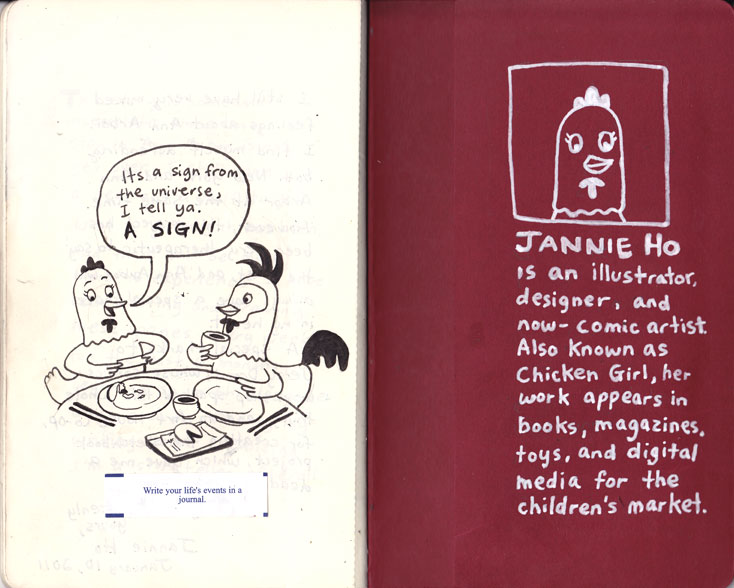 Its a sign from
the universe,
I tell ya.
A SIGN!
Write your life's events in a
journal.
JANNIE HO
is an illustrator,
designer, and
now-comic artist.
Also known as
Chicken Girl, her
work appears in
books, magazines,
toys, and digital
media for the
children's market.